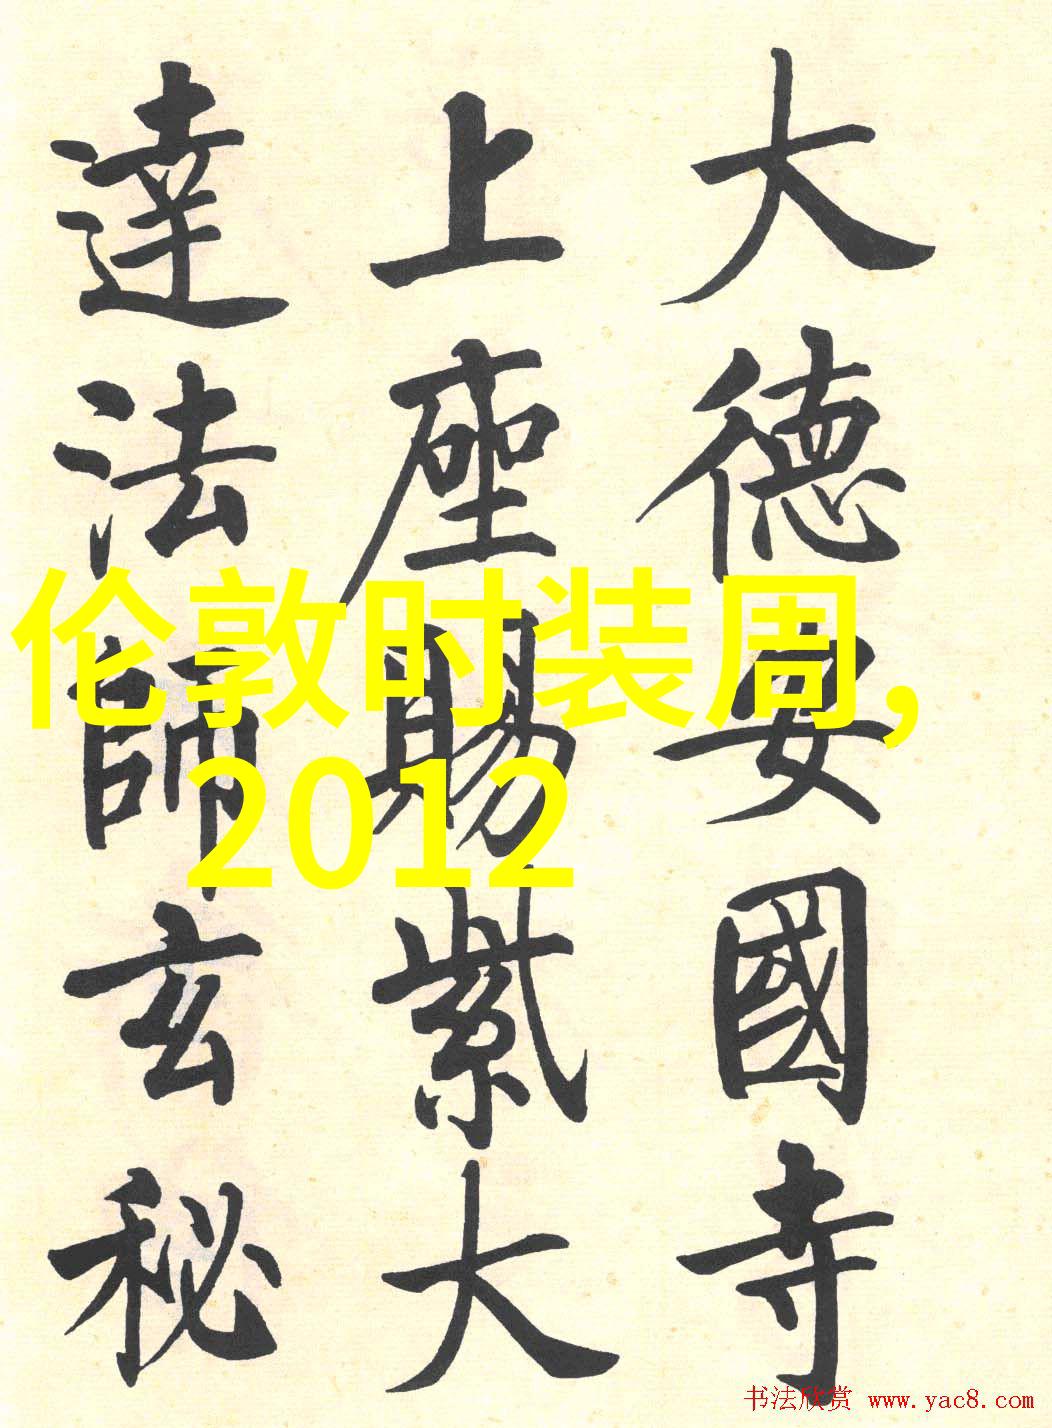 大德安國寺
上座賜紫大
達法師玄秘
伦敦时装周,
2012
书法欣赏 www.yac8.com